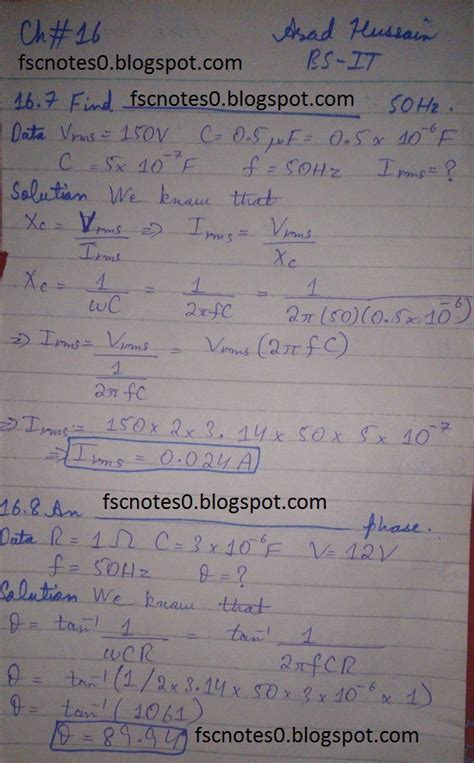 Ch#16 Asad Hussain
fscnotes0.blogspot.com BS-IT
16.7 Find fscnotes0.blogspot.com 50Hz.
Data Vrms = 150V C = 0.5 μF = 0.5 x 10^-6 F
C = 5x 10^-7 F f = 50Hz Irms = ?
Solution We know that
Xc = Vrms/Irms => Irms = Vrms/Xc
Xc = 1/ωC = 1/2πfC = 1/2π(50)(0.5x10^-6)
=> Irms = Vrms/(1/2πfC) = Vrms (2πfC)
=> Irms = 150 x 2 x 3.14 x 50 x 5 x 10^-7
=> Irms = 0.024A
fscnotes0.blogspot.com
16.8 An phase.
Data R = 1Ω C = 3x10^-6 F V = 12V
f = 50Hz θ = ?
Solution We know that
θ = tan^-1 1/ωCR = tan^-1 1/2πfCR
θ = tan^-1 (1/2x3.14 x 50 x 3 x 10^-6 x 1)
θ = tan^-1 (1061)
θ = 89.94 fscnotes0.blogspot.com